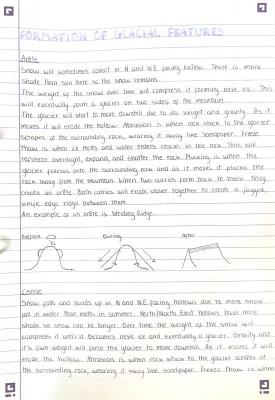 FORMATION OF GLACIAL FEATURES
Arête
Snow will sometimes collect in N and N.E. facing hollow. There is more
shade than sun here so the snow remains.
The weight of the snow over time will compress it forming neve ice. This
will eventually form a glacier on two sides of the mountain.
The glacier will start to move downhill due to its weight and gravity. As it
moves it will erode the hollow. Abrasion is when rock stuck to the glacier
scrapes at the surrounding rocks, wearing it away like sandpaper. Freeze
thaw is when ice melts and water enters cracks in the rock. This will
refreeze overnight, expand, and shatter the rock. Plucking is when the
glacier freezes onto the surrounding rock and as it moves it plucks the
rock away from the mountain. When two corries form back to back they
create an arête. Both corries will erode closer together to create a jagged,
knife edge ridge between them.
An example of an arête is Striding Edge.
Before During After
Corrie
Snow falls and builds up in N and N.E. facing hollows due to more snow
fall in winter than melts in summer. North/North East hollows have more
shade so snow can lie longer. Over time the weight of the snow will
compress it until it becomes neve ice and eventually a glacier. Gravity and
it's own weight will force the glacier to move downhill. As it moves it will
erode the hollow. Abrasion is when rock stuck to the glacier scrapes at
the surrounding rock, wearing it away like sandpaper. Freeze thaw is when